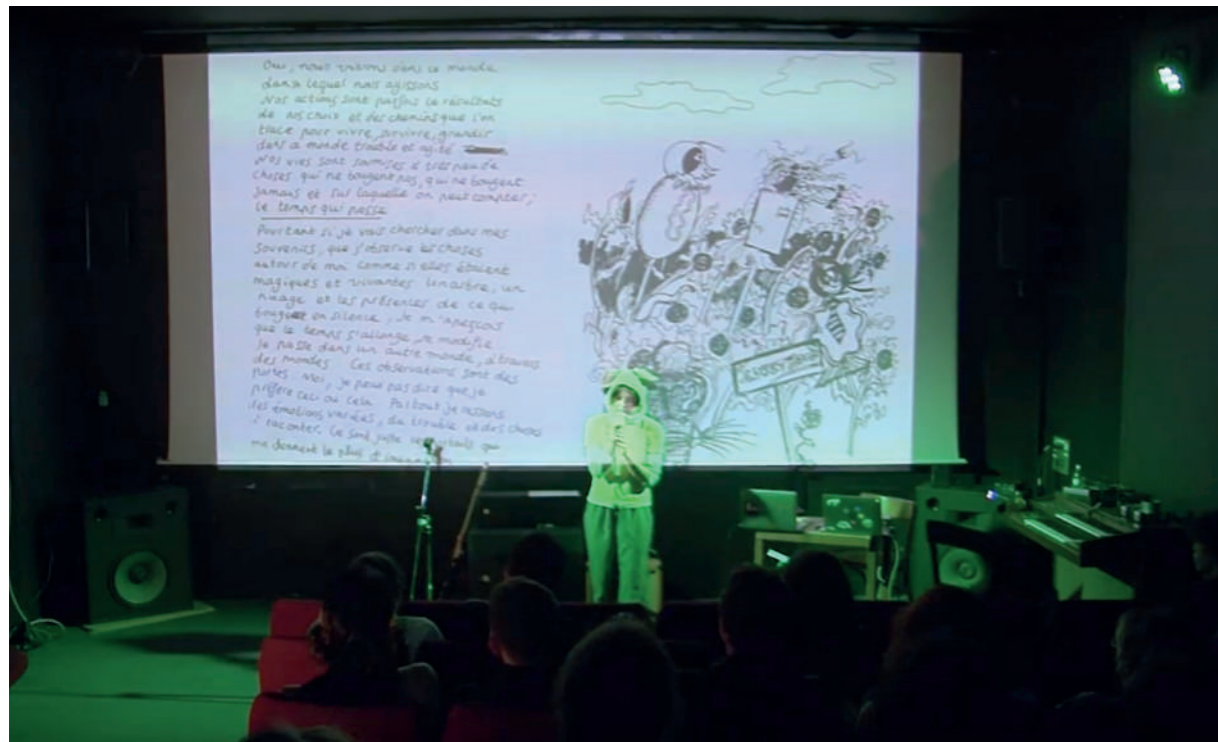 Oui, nous vivons dans ce monde
dans lequel nous agissons
Nos actions sont parfois le résultats
de nos choix et des chemins que l'on
trace pour vivre, survivre, grandir
dans ce monde trouble et agité
Nos vies sont soumises à très peu de
choses qui ne bougent pas, qui ne bougent
jamais et sur laquelle on peut compter;
le temps qui passe
Pourtant si je vais chercher dans mes
souvenirs, que j'observe les choses
autour de moi comme si elles étaient
magiques et vivantes un arbre, un
nuage et les présences de ce qui
bouge en silence, je m'aperçois
que le temps s'allonge, se modifie
Je passe dans un autre monde, à travers
des mondes. Ces observations sont des
portes. Moi, je peux pas dire que je
préfère ceci ou cela. Partout je ressens
les émotions variées, du trouble et des choses
à raconter. Ce sont juste les portails qui
me donnent le plus d'